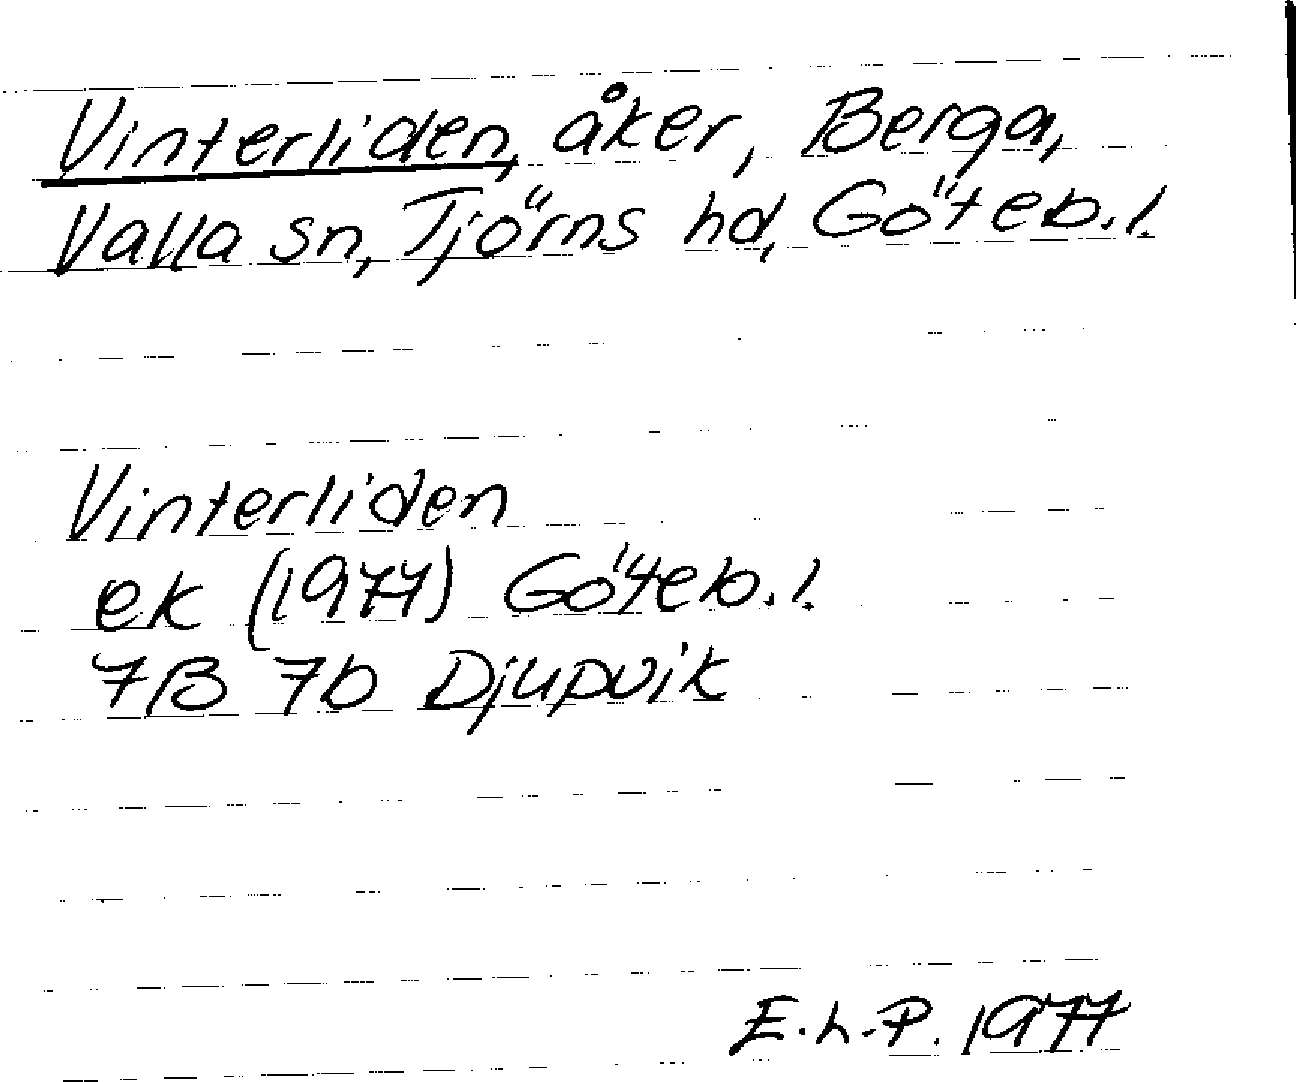 Vinterliden, åker, Berga,
Valla sn, Tjörns hd, Göteb.l.
Vinterliden
ek (1977) Göteb.l.
7B 7b Djupvik
E.L.P. 1977